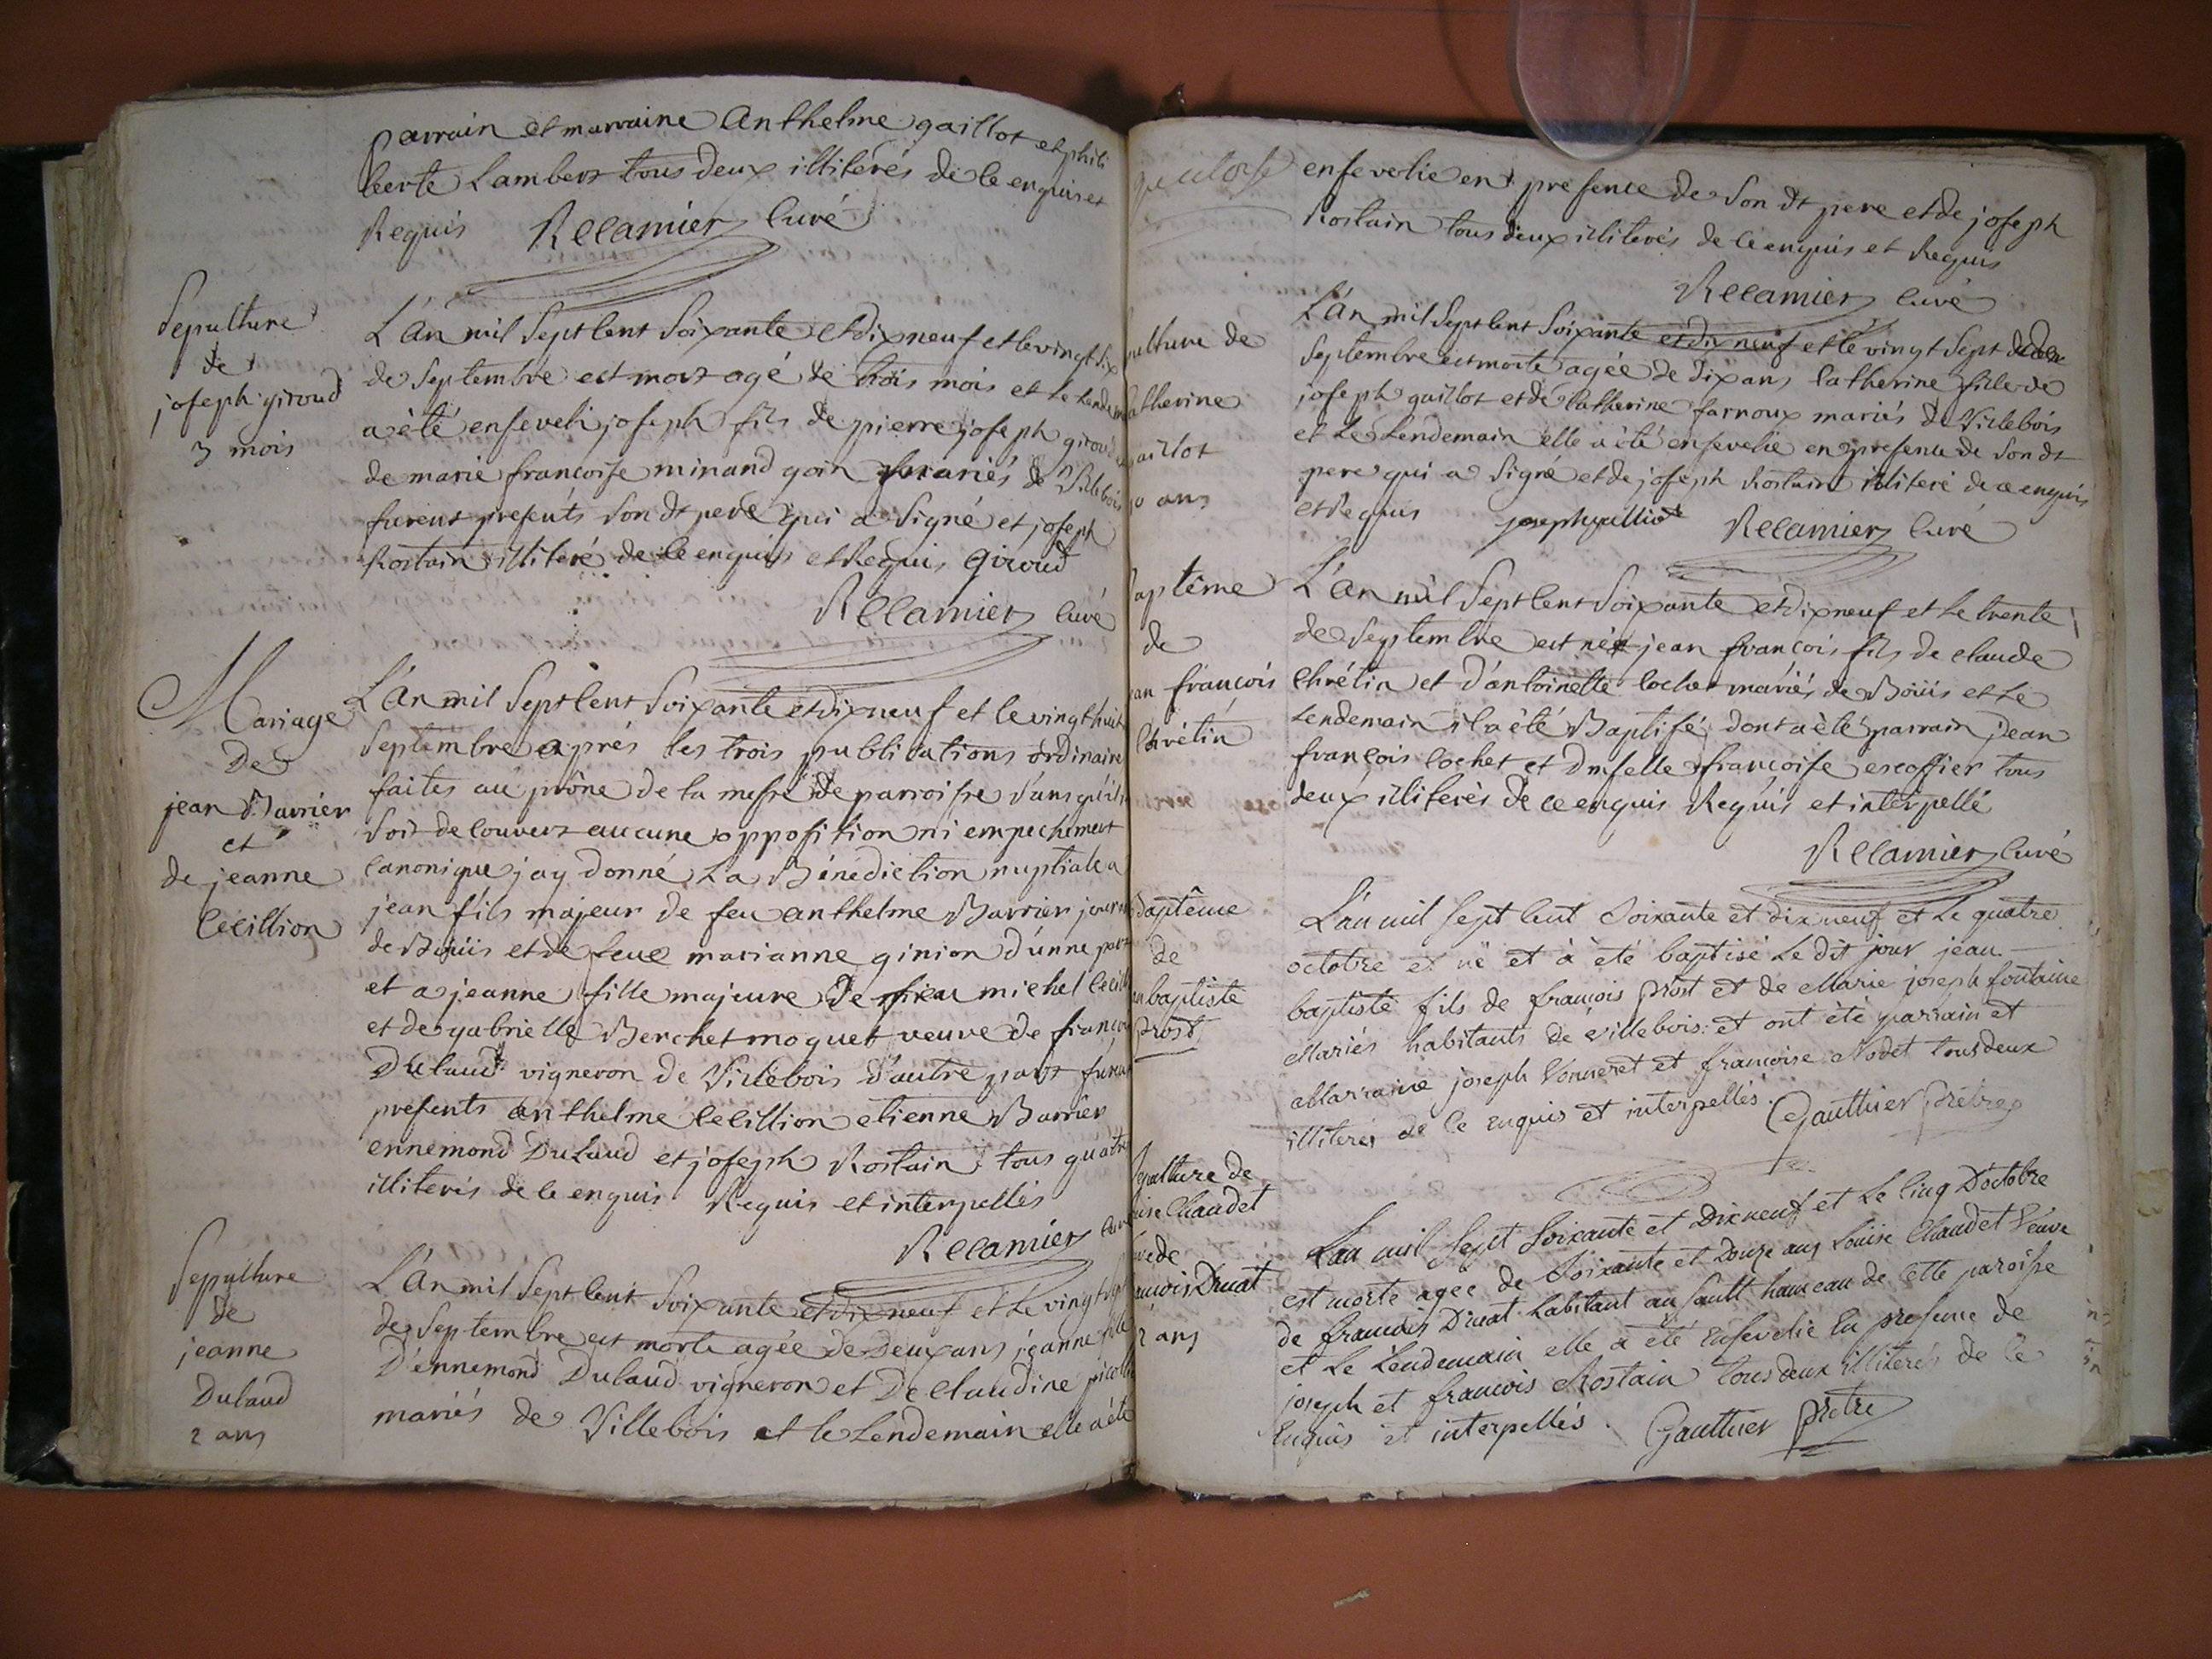 parrain et marraine Anthelme gaillot et phili
berte Lambert tous deux illiterés de ce enquis et
Requis Recamier Curé
Sepulture
de
joseph giroud
3 mois
L'an mil Sept Cent Soixante et dix neuf et le vingt Six
de Septembre est mort agé de trois mois et le Lendem
a été enseveli joseph fils de pierre joseph giroud
de marie françoise minand goin mariés de Villebois
furent presents Son dt pere qui a Signé et joseph
Rostain illiteré de Ce enquis et Requis Giroud
Recamier Curé
Mariage
De
jean Barrier
et
de jeanne
Cecillion
L'an mil Sept Cent Soixante et dix neuf et le vingt huit
Septembre après les trois publications ordinaire
faites au prône de la messe de parroisse Sans qu'il
Soit decouvert aucune opposition ni empechement
Canonique jay donné La Bénédiction nuptiale a
jean fils majeur de feu anthelme Barrier journ
de Boüis et de feue marianne ginion d'unne part
et a jeanne fille majeure De feu michel Cecill
et de gabrielle Berchet moquet veuve de françoi
Dulaud vigneron de Villebois d'autre part furent
presents anthelme Cecillion etienne Barrier
ennemond Dulaud et joseph Rostain tous quatre
illiterés de Ce enquis Requis et interpellés
Recamier Curé
Sepulture
de
jeanne
Dulaud
2 ans
L'an mil Sept Cent Soixante et dix neuf et Le vingt Sept
de Septembre est morte agée de Deux ans jeanne fille
D'ennemond Dulaud vigneron et De Claudine
mariés de Villebois et le Lendemain elle a été
ensevelie en presence de Son dt pere et de joseph
Rostain tous deux illiterés de Ce enquis et Requis
Recamier Curé
pulture de
Catherine
gaillot
10 ans
L'an mil Sept Cent Soixante et dix neuf et le vingt Sept de
Septembre est morte agée de Dix ans Catherine fille de
joseph gaillot et de Catherine farnoux mariés de Villebois
et Le Lendemain elle a été ensevelie en presence de Son dt
pere qui a Signé et de joseph Rostain illiteré de ce enquis
et Requis joseph gailliot Recamier Curé
aptême
de
ean françois
Chrétin
L'an mil Sept Cent Soixante et dix neuf et Le trente
de Septembre est né jean françois fils de Claude
Chrétin et d'antoinette Cochet mariés de Boüis et Le
Lendemain il a été Baptisé, dont a été parrain jean
françois Cochet et Dmselle françoise escoffier tous
deux illiterés de ce enquis Requis et interpellé
Recamier Curé
Baptême
de
an baptiste
Prost
L'an mil Sept Cent Soixante et dix neuf et Le quatre
octobre est né et à été baptisé Le dit jour jean
baptiste fils de françois prost et de Marie joseph fontaine
Mariés habitants de Villebois: et ont été parrain et
Marraine joseph Vonneret et françoise Nodet tous deux
illiterés de Ce enquis et interpellés. Gauthier prêtre
Sepulture de
uise Chaudet
uve de
ançois Druat
2 ans
L'an mil Sept Soixante et Dix neuf et Le Cinq D'octobre
est morte agée de Soixante et Douze ans Louise Chaudet Veuve
de françois Druat habitant au Sault hameau de Cette paroisse
et Le Lendemain elle a été Ensevelie En presence de
joseph et françois Rostain tous deux illiterés de Ce
Enquis et interpellés. Gauthier prêtre